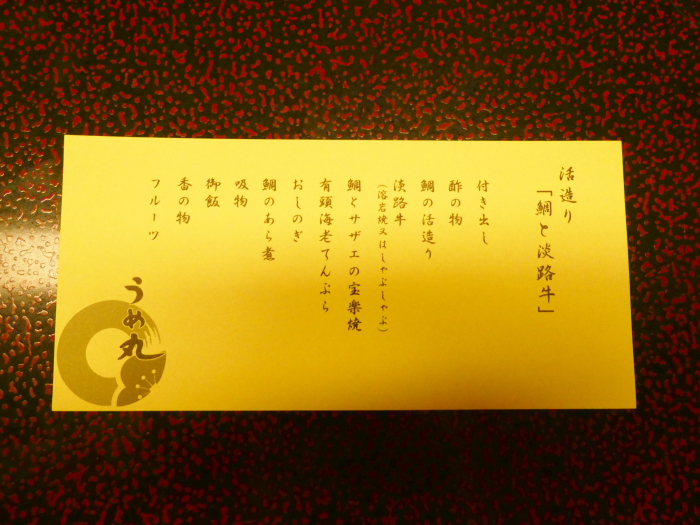 活造り
「鯛と淡路牛」
付き出し
酢の物
鯛の活造り
淡路牛
(溶岩焼又はしゃぶしゃぶ)
鯛とサザエの宝楽焼
有頭海老てんぷら
おしのぎ
鯛のあら煮
吸物
御飯
香の物
フルーツ
うめ丸